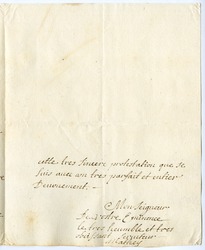 cette tres sincere protestation que je
suis avec un tres parfait et entier
Devouement. –
Monseigneur
De votre Eminence
Le tres humble et tres
obeissant Serviteur